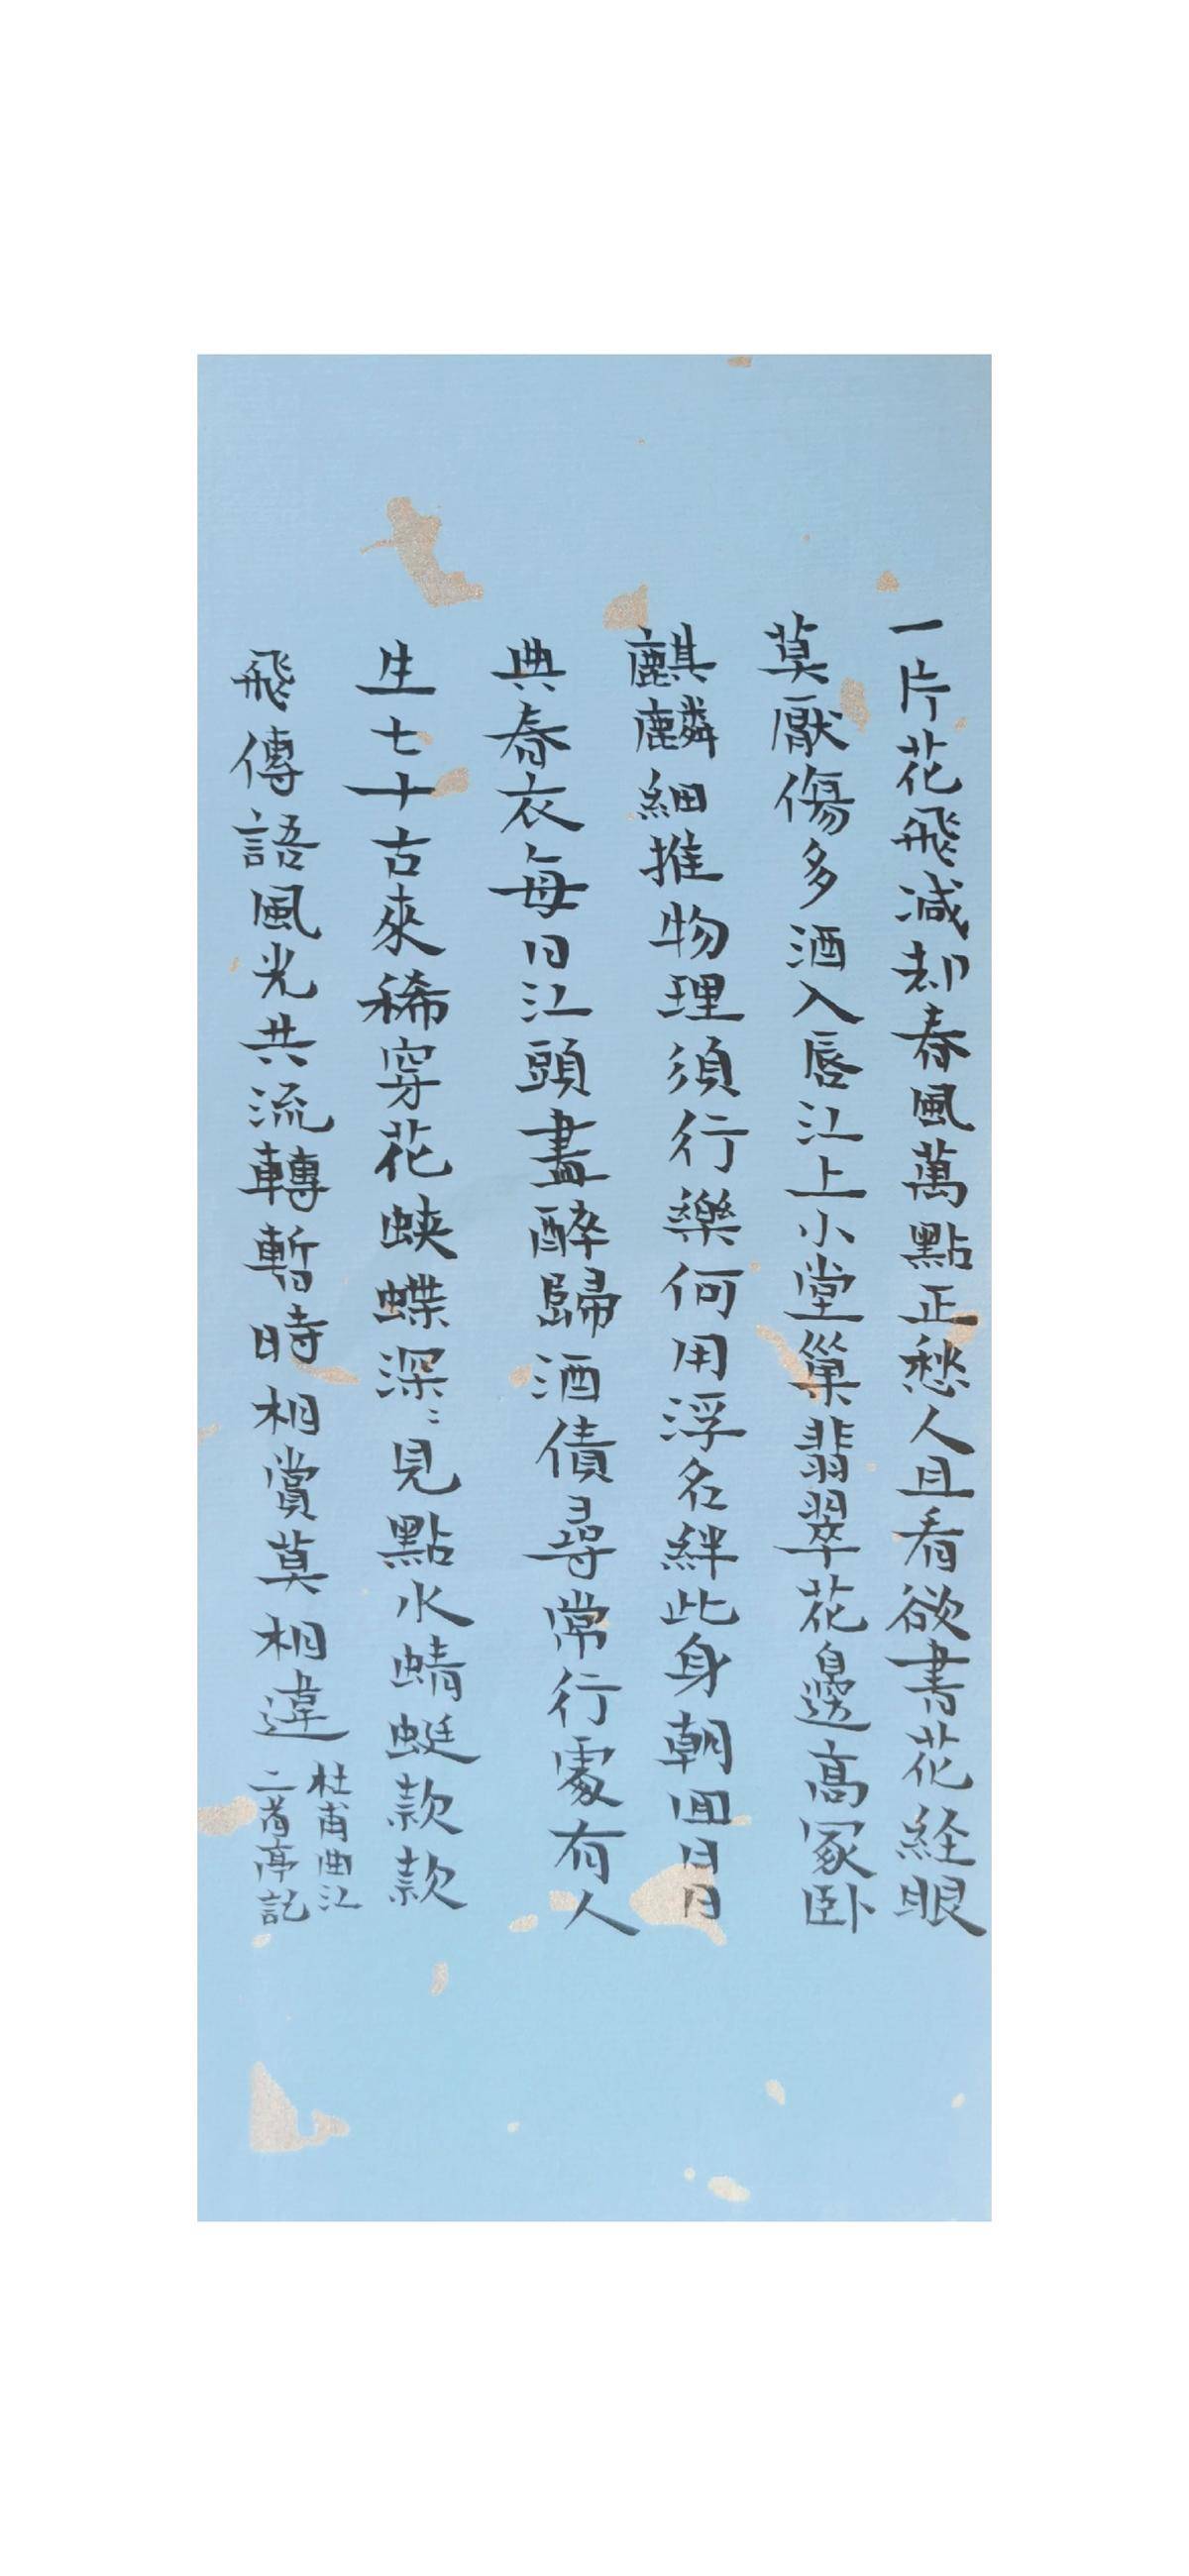 一片花飛減却春風萬點正愁人且看欲書花経眼
莫厭傷多酒入唇江上小堂巢翡翠花邊高冢卧
麒麟細推物理須行樂何用浮名絆此身朝囬日日
典春衣每日江頭盡醉歸酒債尋常行處有人
生七十古來稀穿花蛺蝶深〻見點水蜻蜓款款
飛傳語風光共流轉暫時相賞莫相違
杜甫曲江
二首亭記